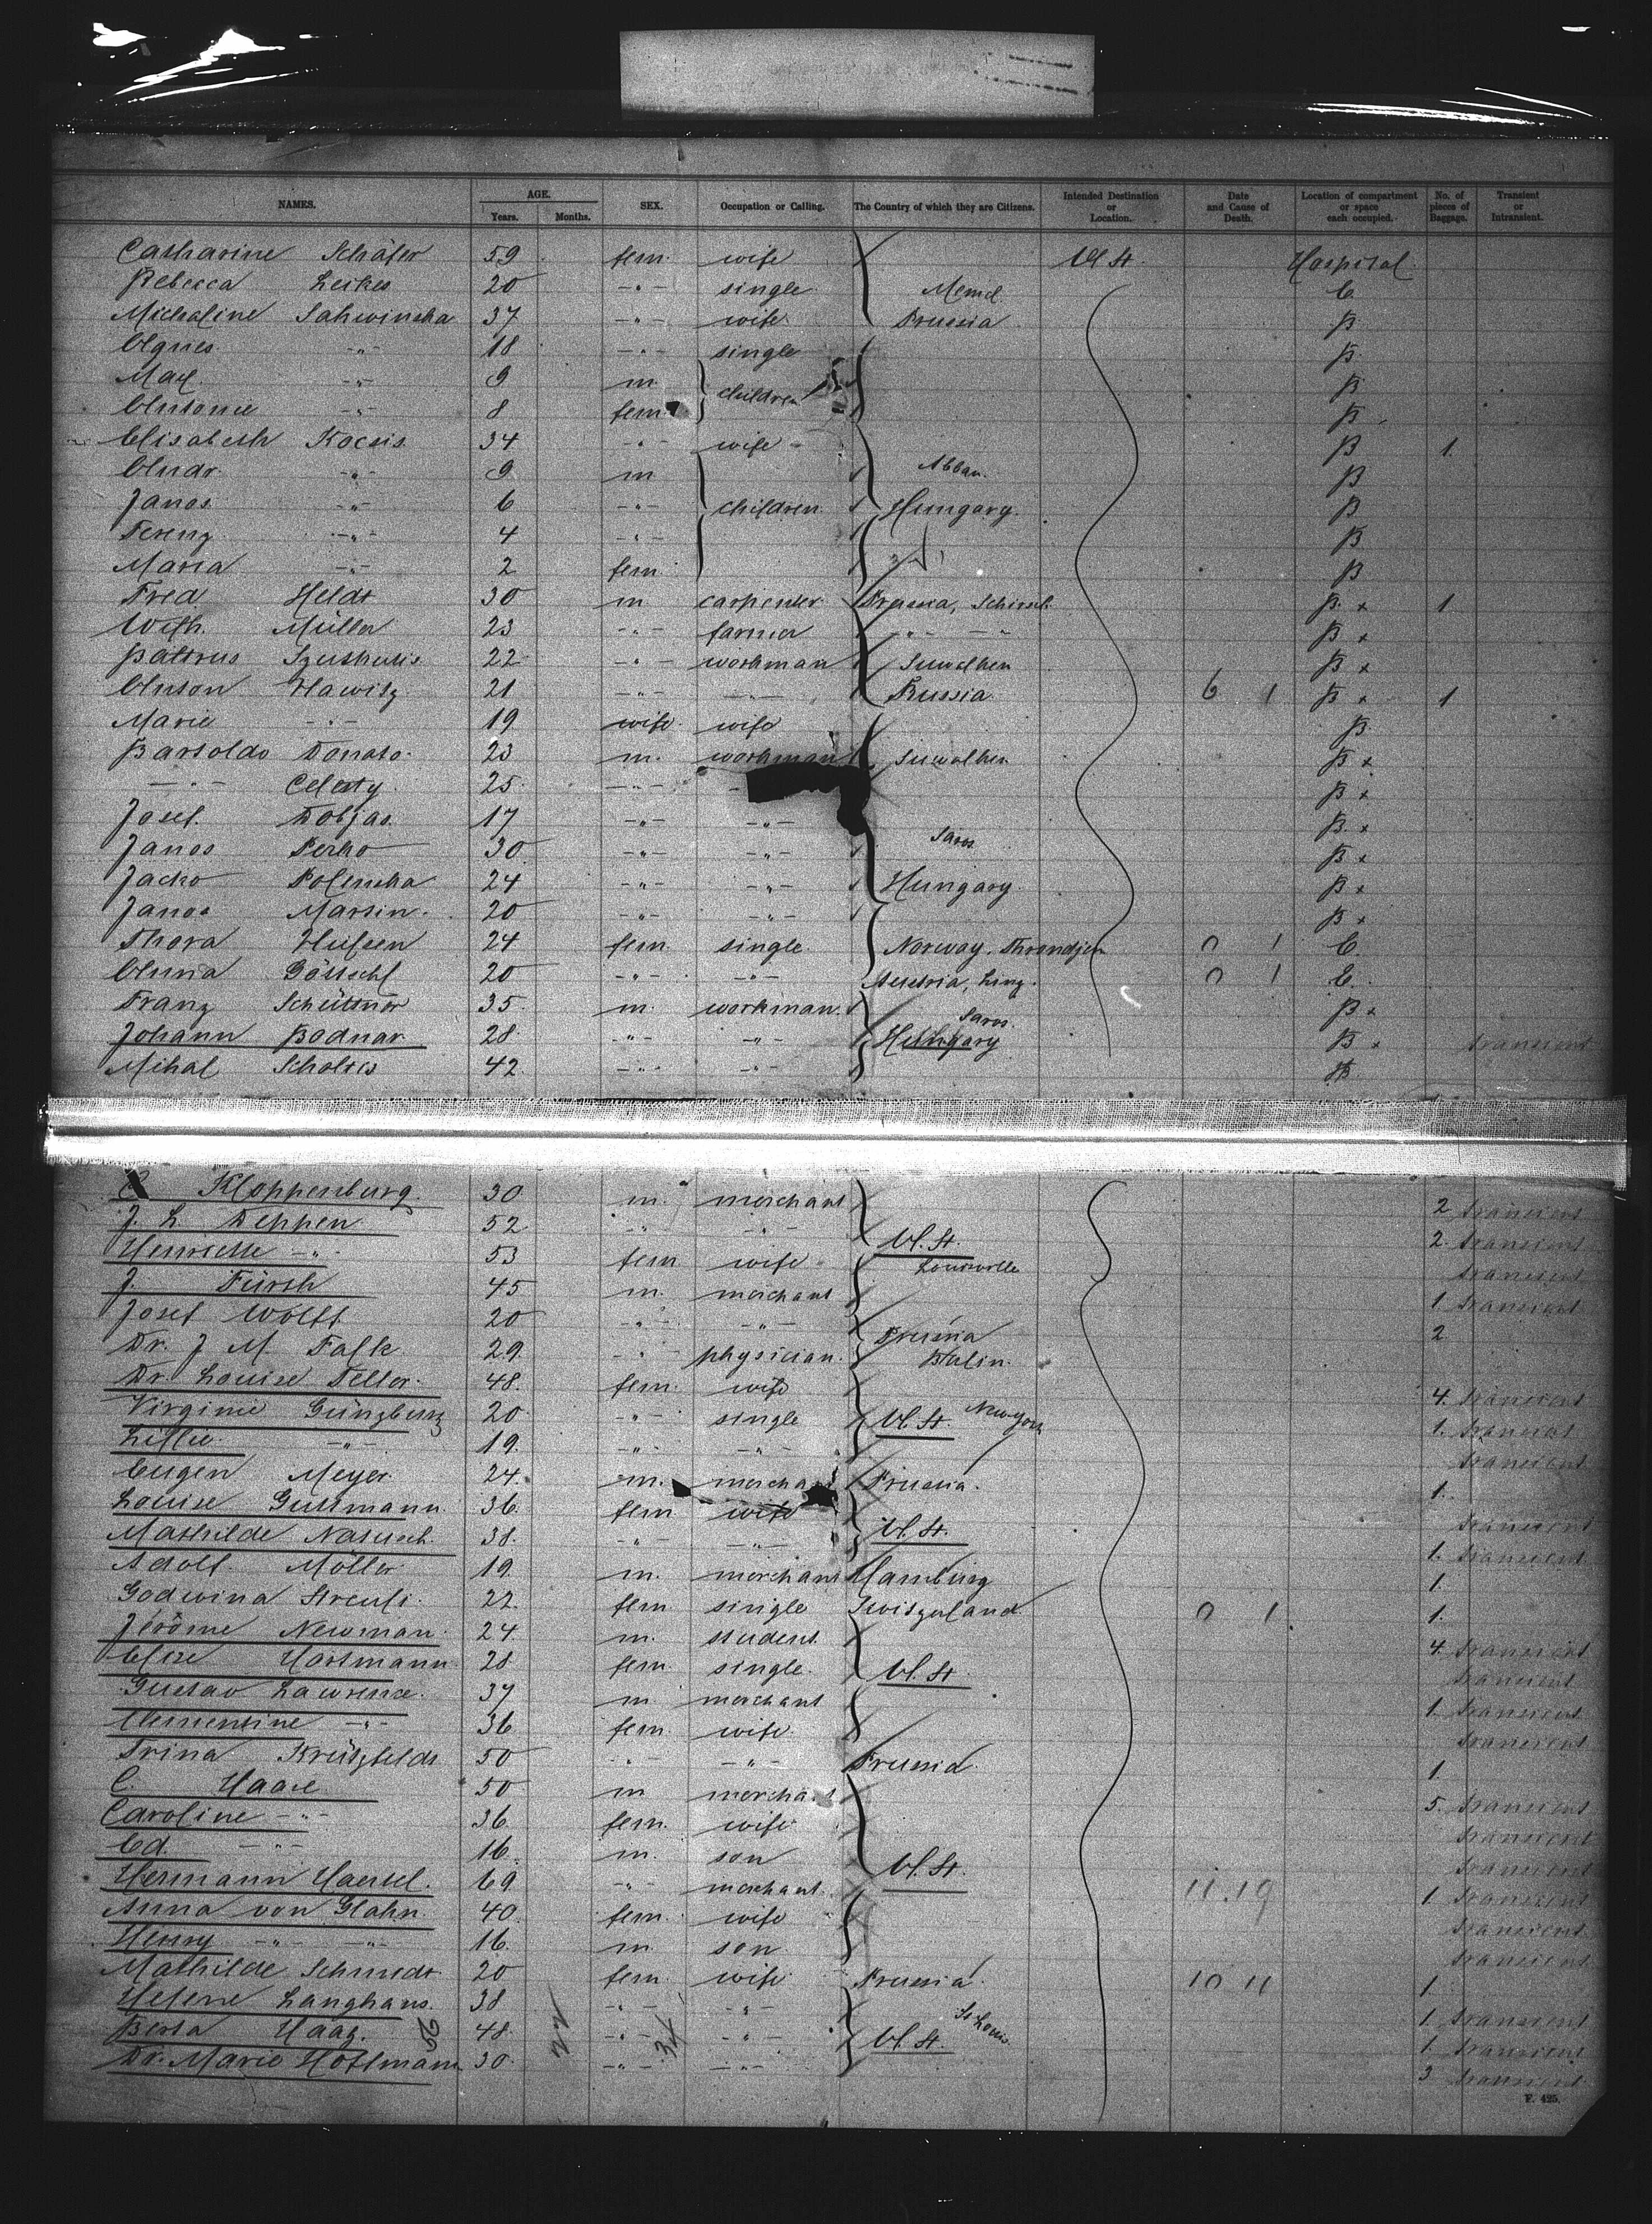 NAMES. AGE. Years. Months. SEX. Occupation or Calling. The Country of which they are Citizens. Intended Destination or Location. Date and Cause of Death. Location of compartment or space each occupied. No. of pieces of Baggage. Transient or Intransient.
Catharine Schäfer 59 fem. wife U. St. Hospital
Rebecca Leikes 20 -"- single Memel C.
Michaline Sahwinska 37 -"- wife Prussia B.
Agnes -"- 18 -"- single B.
Max -"- 9 m. children B
Antonie -"- 8 fem. B.
Elisabeth Kocsis 34 -"- wife B 1.
Andr. -"- 9 m Abbau. B
Janos -"- 6 -"- children Hungary. B
Ferenz -"- 4 -"- B
Maria -"- 2 fem B
Fred Heldt 30 m carpenter Prussia, B. x 1
Wilh. Müller 23 -"- farmer -"- -"- B x
Baltrus 22 -"- workman Suwalken B x
Anton Hawitz 21 -"- -"- Russia 6 1 B x 1
Marie -"- 19 wife wife B.
Bartoldo Donato 23 m. workman Suwalken B x
-"- Celesty 25 -"- B x
Josef Dobjas 17 -"- -"- B. x
Janos Perko 30 -"- -"- Saros B x
Jacko Polenska 24 -"- -"- Hungary. B x
Janos Martin. 20 -"- -"- B x
Thora 24 fem. single Norway. Throndjen 0 1 C.
Anna Göttschl 20 -"- -"- Austria, Linz. 0 1 C.
Franz Schüttner 35 m. workman. Saros. B x
Johann Bodnar 28 -"- -"- Hungary B x transient
Mihal Scholtes 42 -"- -"- B
Kloppenburg. 30 m. merchant 2 transient
J. L. Deppen 52 -"- -"- U. St. 2. transient
Henriette -"- 53 fem wife Louisville transient
J. Fürth 45 m. merchant 1 transient
Josef Wolff 20 -"- -"- Prussia 2
Dr. J. M. Falk 29. -"- physician. Berlin.
Dr. Louise Feller. 48. fem. wife 4. transient
Virginie Günzburg 20 -"- single U. St. New York 1. transient
Lillie -"- 19. -"- -"- transient
Eugen Meyer 24. m. merchant Prussia. 1.
Louise Guttmann 36. fem wife transient
Mathilde Natusch. 38. -"- -"- U. St. 1. transient
Adolf Möller 19. m. merchant Hamburg 1.
Godwina Streuli. 22. fem single Switzerland. 0 1 1.
Jérôme Newman 24. m. student 4. transient
Elise Hartmann 28 fem. single. U. St. transient
Gustav Lawrence. 37 m merchant 1. transient
Clementine -"- 36 fem. wife transient
Trina Krützfeldt 50 -"- -"- Prussia. 1.
C. Haase 50 m merchant 5. transient
Caroline -"- 36 fem. wife transient
Ed. -"- 16. m. son U. St. transient
Hermann Haertel. 69 -"- merchant. 11.19 1 transient
Anna von Glahn. 40. fem. wife transient
Henry -"- -"- 16. m. son transient
Mathilde Schmidt. 20 fem. wife Prussia. 10 11 1.
Helene Langhans. 38 -"- -"- St. Louis. 1. transient
Berta Haag. 48. -"- -"- U. St. 1. transient
Dr. Marie Hoffmann 30. -"- -"- 3 transient
F. 425.